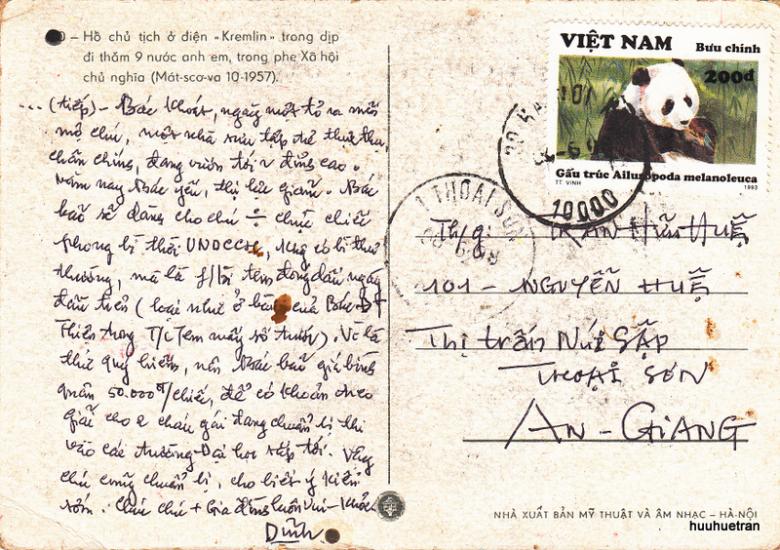 - Hồ chủ tịch ở điện «Kremlin» trong dịp
đi thăm 9 nước anh em, trong phe Xã hội
chủ nghĩa (Mát-scơ-va 10-1957).
... (tiếp) - Bác Khoát, ngày một tỏ ra mến
mộ chú, một nhà sưu tập tư thương
chân chính, đang vươn tới đỉnh cao.
Năm nay Bác yếu, thị lực giảm. Bác
bảo sẽ dàng cho chú ÷ chục chiếc
phong bì thời UNDCCH, không có bì thư
thường, mà là f/bì tem đóng dấu ngày
đầu tiên (loại như ở bài của Bác
Thiện trong T/C Tem mấy số trước). Vì là
thứ quý hiếm, nên Bác bảo giá bình
quân 50.000đ/chiếc, để có khoản treo
giải cho 2 cháu gái đang chuẩn bị thi
vào các trường Đại học sắp tới. Vậy
chú cũng chuẩn bị, cho biết ý kiến
sớm. Chúc chú + Gia đình luôn vui - khỏe
Dĩnh
VIỆT NAM
Bưu chính
200đ
Gấu trúc Ailuropoda melanoleuca
TT. VINH
1993
10000
THOẠI SƠN
Th/g: TRẦN HỮU HUỆ
101 - NGUYỄN HUỆ
Thị trấn Núi SẬP
THOẠI SƠN
AN - GIANG
NHÀ XUẤT BẢN MỸ THUẬT VÀ ÂM NHẠC - HÀ-NỘI
huuhuetran